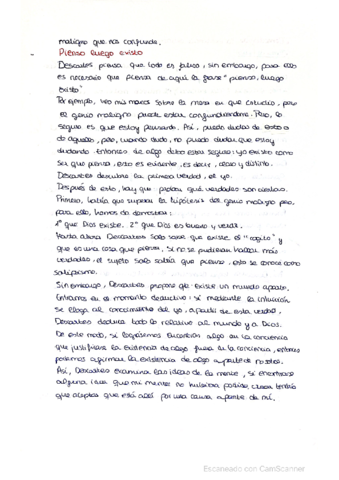 maligno que nos confunde.
Pienso luego existo
Descartes piensa que todo es falso, sin embargo, para ello
es necesario que piense de aquí la frase "pienso, luego
existo"
Por ejemplo, veo mis manos sobre la mesa en que estudio, pero
el genio maligno puede estar confundiéndome. Pero, lo
seguro es que estoy pensando. Así, puedo dudar de esto o
de aquello, pero, cuando dudo, no puedo dudar que estoy
dudando. Entonces de algo debo estar seguro: yo existo como
ser que piensa, esto es evidente, es decir, claro y distinto.
Descartes descubre la primera verdad, el yo.
Después de esto, hay que probar qué verdades son ciertas.
Primero, había que superar la hipótesis del genio maligno pero,
para ello, hemos de demostrar:
1º que Dios existe. 2º que Dios es bueno y verdad.
Hasta ahora Descartes solo sabe que existe el "cogito" y
que es una cosa que piensa, si no se pudieran hallar más
verdades, el sujeto solo sabría que piensa, esto se conoce como
solipsismo.
Sin embargo, Descartes propone que existe un mundo aparte.
Entramos en el momento deductivo: si mediante la intuición
se llega al conocimiento del yo, a partir de esta verdad,
Descartes deduce todo lo relativo al mundo y a Dios.
De este modo, si logásemos encontrar algo en la conciencia
que justificase la existencia de algo fuera de la conciencia, entonces
podemos afirmar la existencia de algo aparte de nosotros.
Así, Descartes examina las ideas de la mente, si encontrase
alguna idea que mi mente no hubiera podido crear tendría
que aceptar que está allí por una causa aparte de mí.
Escaneado con CamScanner